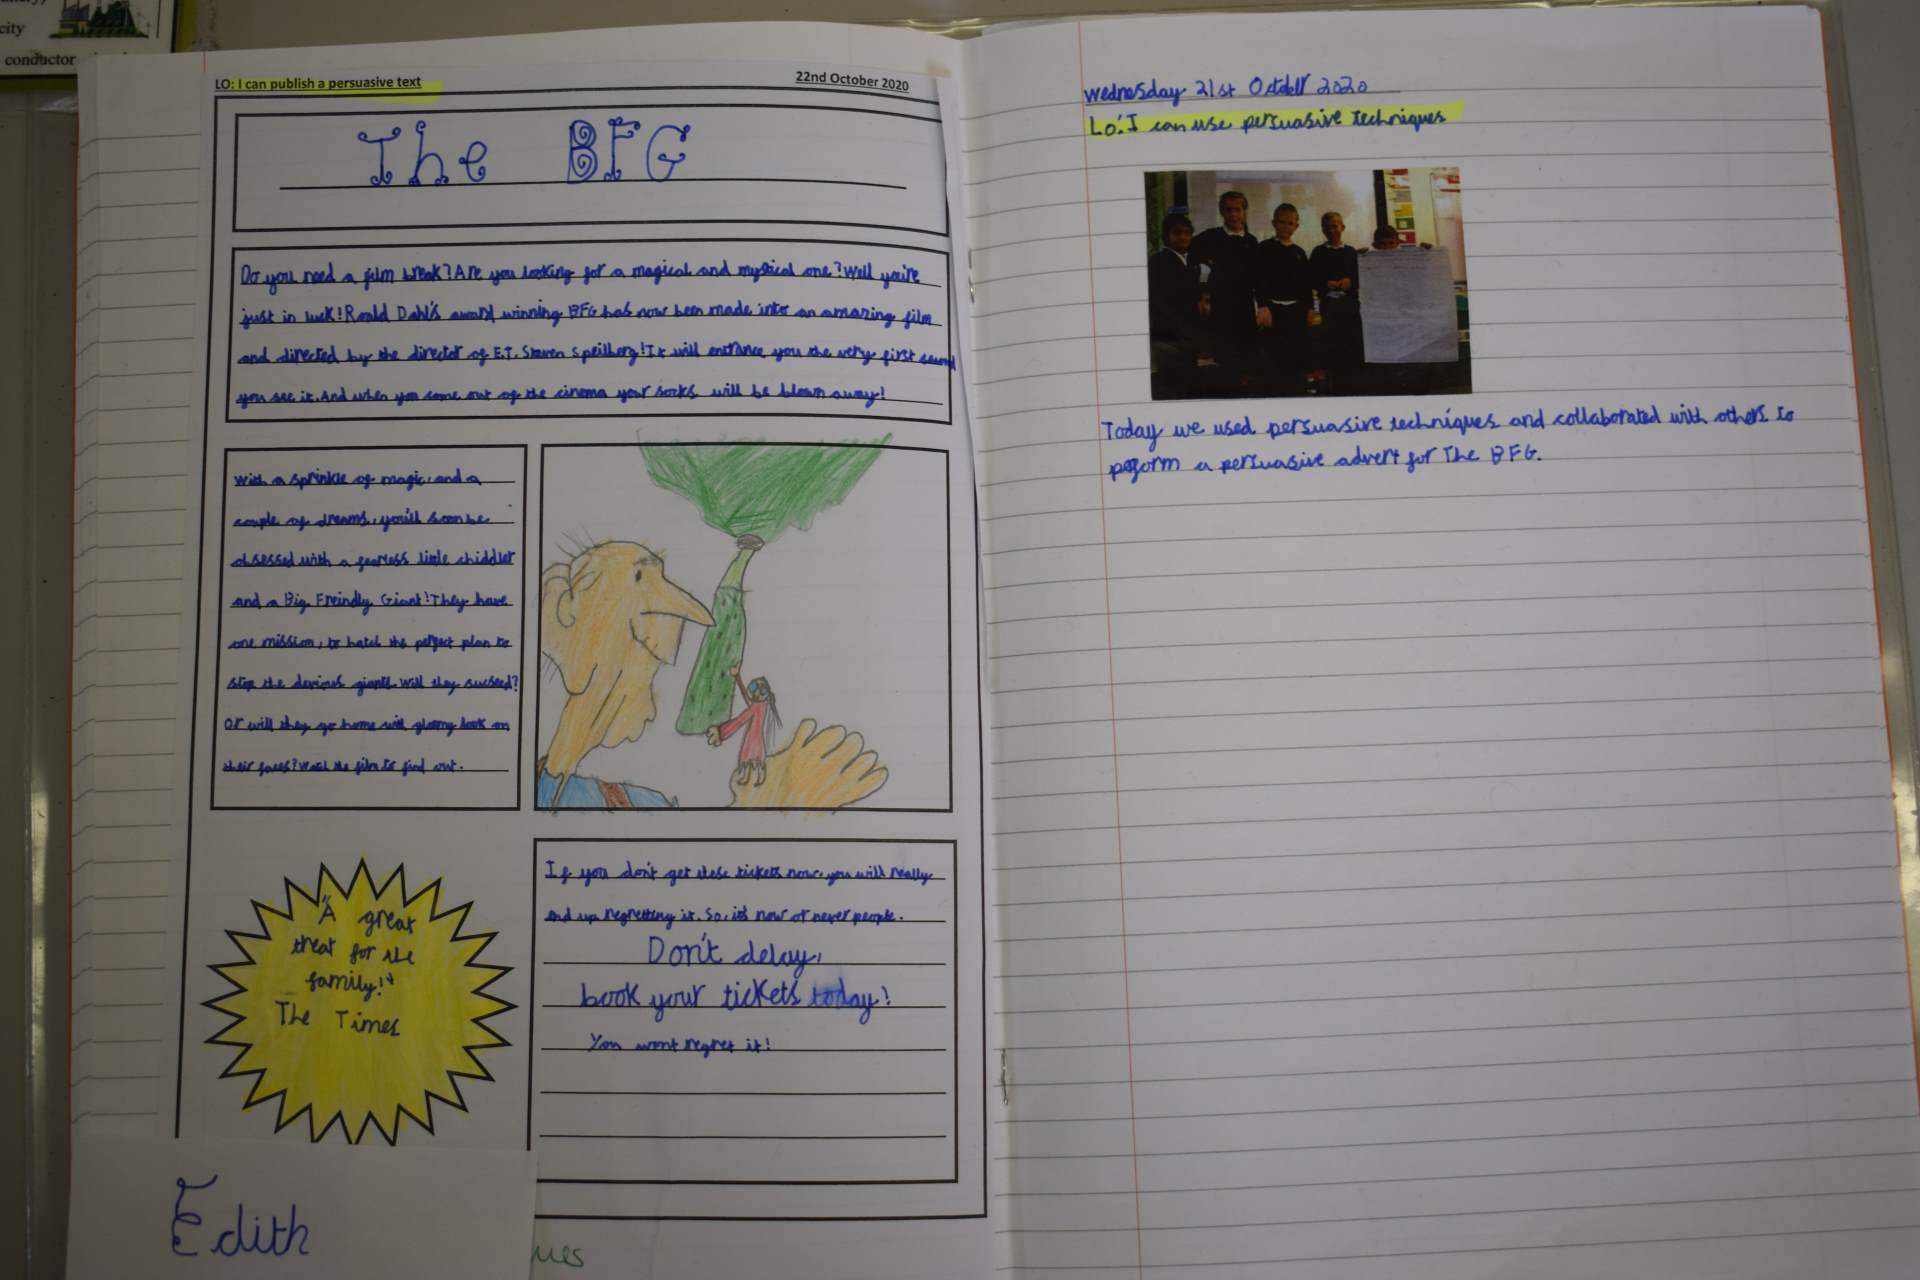 city
conductor
LO: I can publish a persuasive text
22nd October 2020
The BFG
Do you need a film break? Are you looking for a magical and mystical one? Well you're
just in luck! Roald Dahl's award winning BFG has now been made into an amazing film
and directed by the director of E.T. Steven Speilberg! It will entrance you the very first second
you see it. And when you come out of the cinema your socks will be blown away!
With a sprinkle of magic, and a
couple of dreams, you'll soon be
obsessed with a fearless little chiddler
and a Big Freindly Giant! They have
one mission, to hatch the perfect plan to
stop the devious giants. Will they succeed?
Or will they go home with gloomy look on
their faces? Watch the film to find out.
"A great
treat for the
family!"
The Times
If you don't get these tickets now, you will really
end up regretting it. So, it's now or never people.
Don't delay,
book your tickets today!
You wont regret it!
Edith
ues
Wednesday 21st October 2020
Lo: I can use persuasive techniques
Today we used persuasive techniques and collaborated with others to
peform a persuasive advert for The BFG.